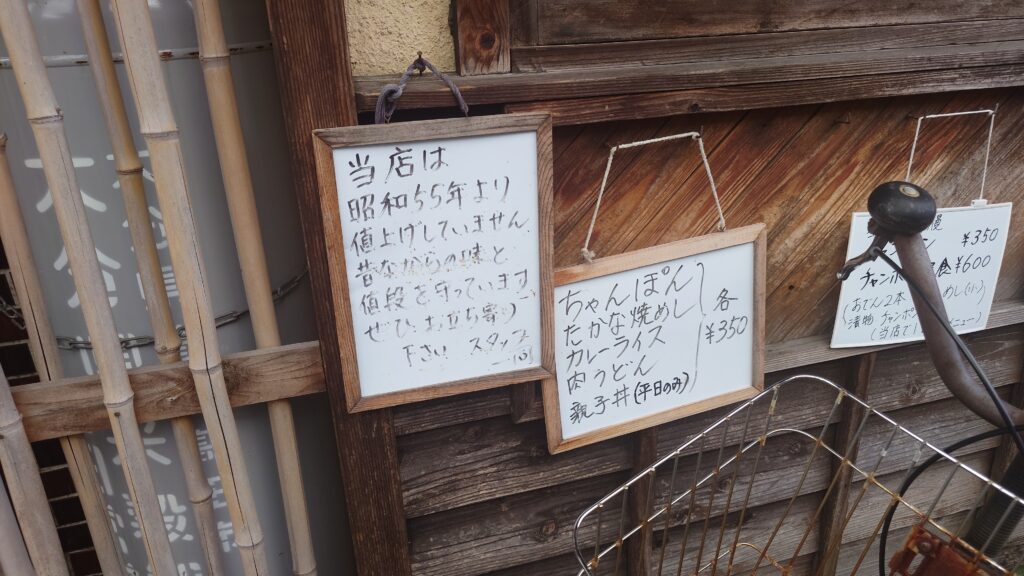 当店は
昭和55年より
値上げしていません
昔ながらの味と
値段を守っています。
ぜひ、お立ち寄り
下さい スタッフ
ちゃんぽん
たかな焼めし
カレーライス
肉うどん
親子丼(平日のみ)
各
¥350
¥350
チャンポ 食¥600
(おでん2本 めし(小)
漬物 チャンポ
(当店で ニュー)